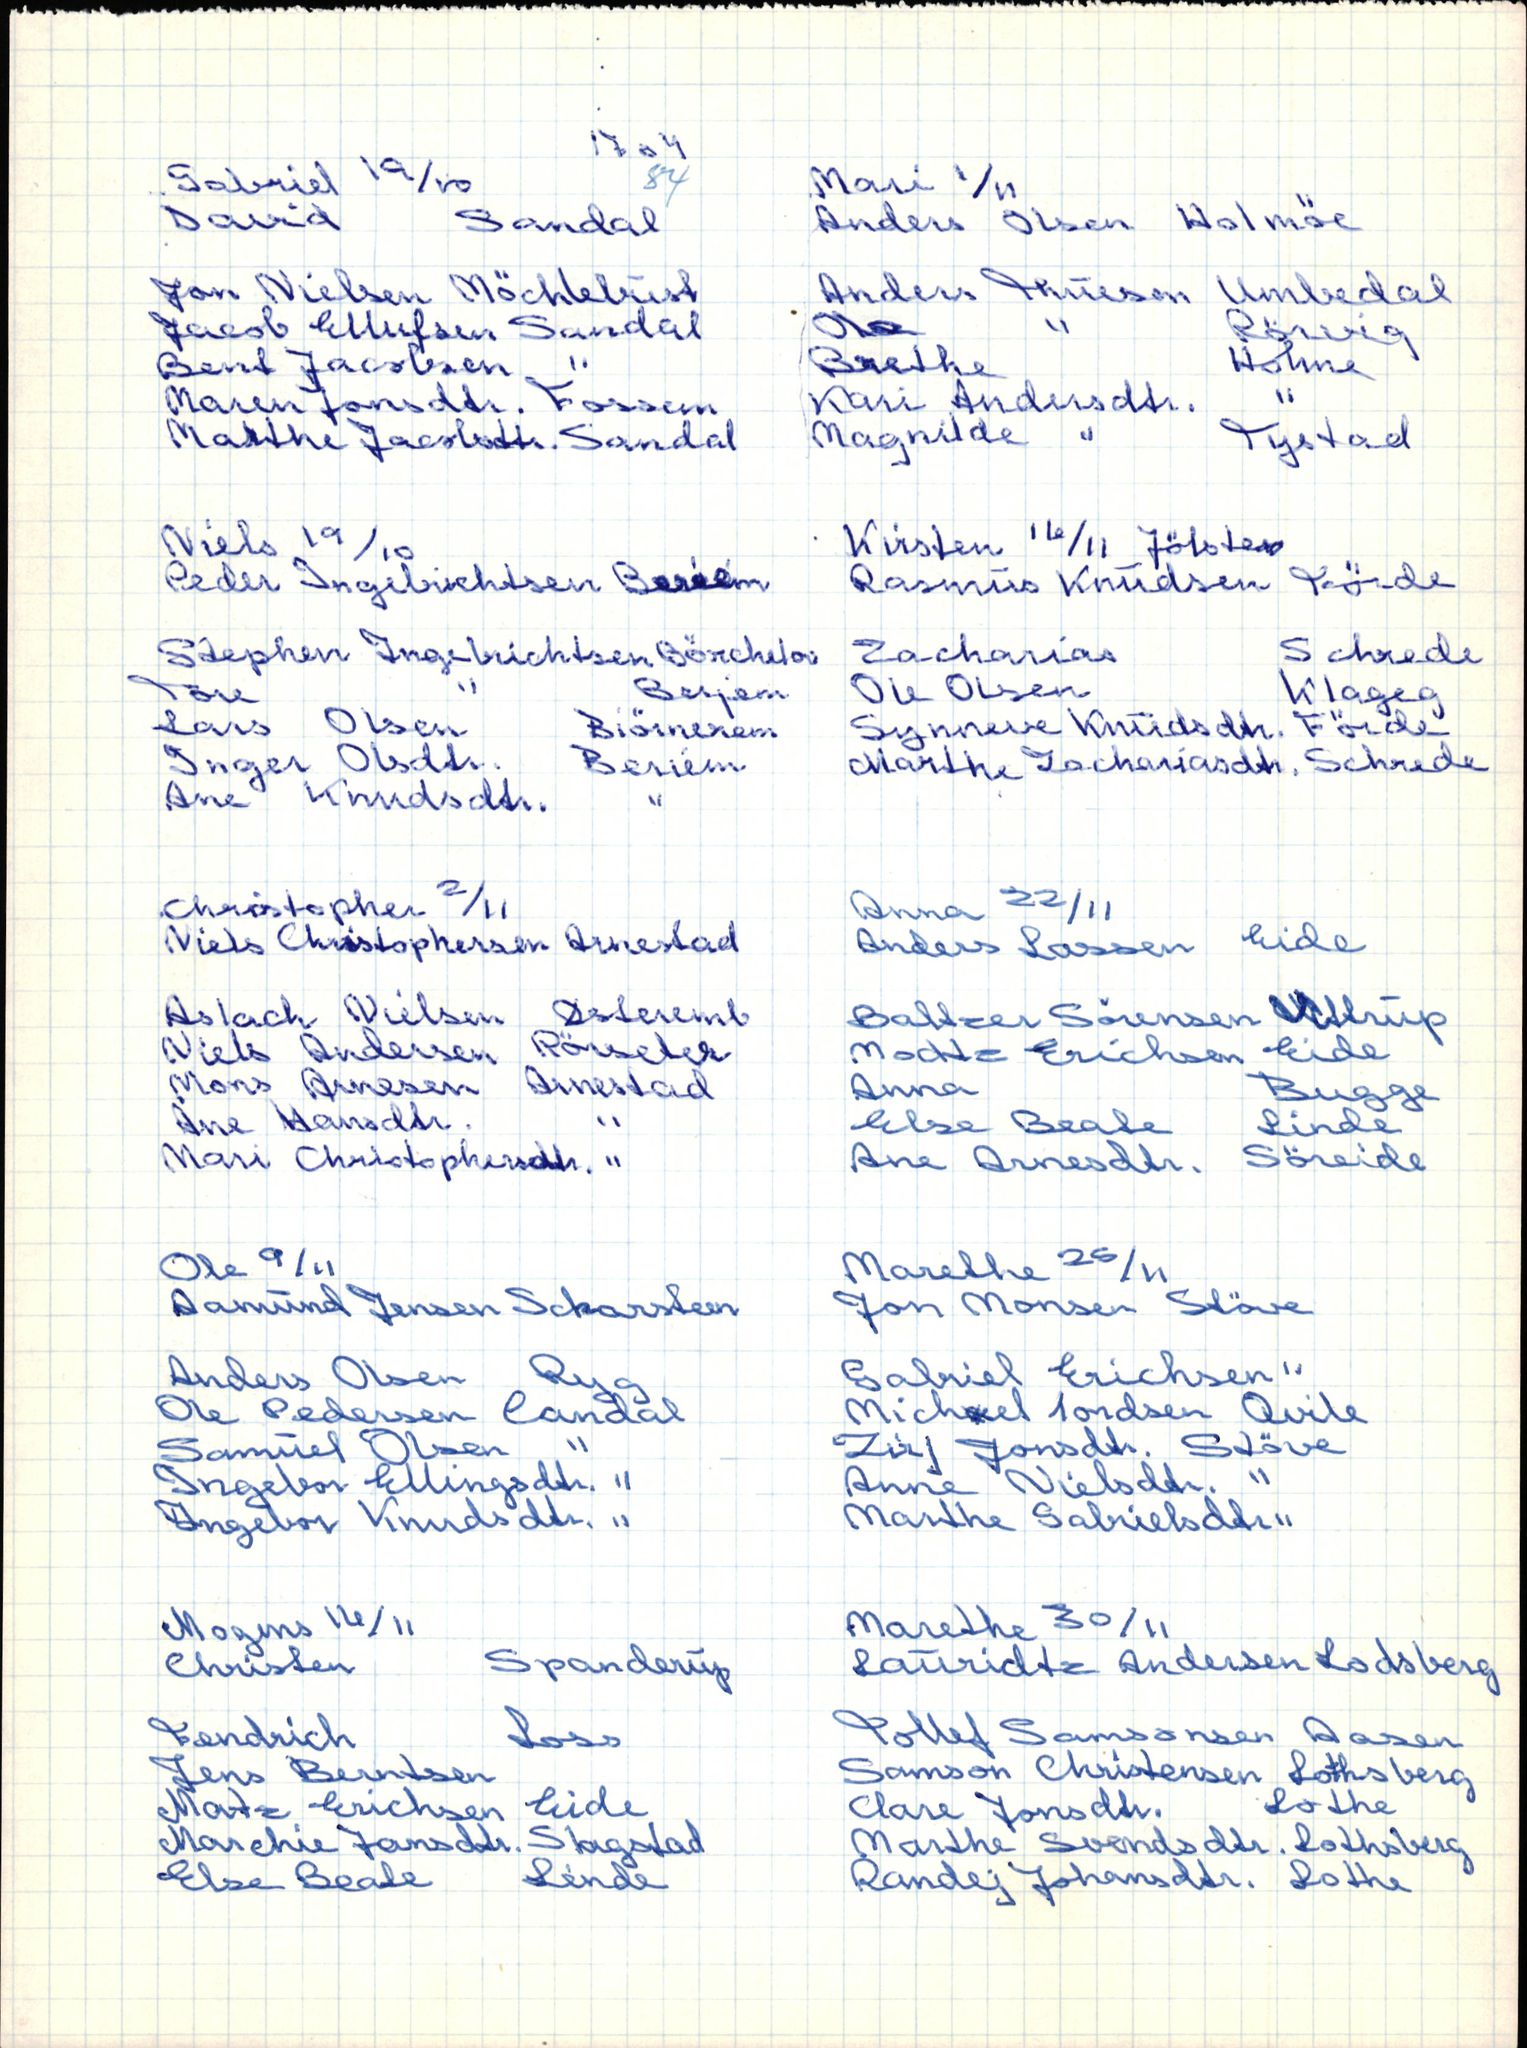 1704
84
Gabriel 19/10
David Sandal
Jon Nielsen Möchlebust
Jacob Ellufsen Sandal
Bent Jacobsen "
Maren Jonsdtr. Fossem
Marthe Jacobsdtr. Sandal
Niels 19/10
Peder Ingebrichtsen Beriem
Stephen Ingebrichtsen Börchelos
Tore " Berjem
Lars Olsen Biörnerem
Inger Olsdtr. Beriem
Ane Knudsdtr. "
Christopher 2/11
Niels Christophersen Arnestad
Aslach Nielsen Østeremb
Niels Andersen Rörseter
Mons Arnesen Arnestad
Ane Hansdtr. "
Mari Christophersdtr. "
Ole 9/11
Aamund Jensen Scharsteen
Anders Olsen Ryg
Ole Pedersen Candal
Samuel Olsen "
Ingebor Ellingsdtr. "
Ingebor Knudsdtr. "
Mogens 16/11
Christen Spanderup
Fendrich Loss
Jens Berntsen
Matz Erichsen Eide
Marchie Jansdtr. Stagstad
Else Beate Linde
Mari 1/11
Anders Olsen Holmöe
Anders Truesen Umbedal
Ole " Rörvig
Brethe Hohne
Kari Andersdtr. "
Magnilde " Tystad
Kirsten 16/11 Jölster
Rasmus Knudsen Förde
Zacharias Schrede
Ole Olsen Klageg
Synneve Knudsdtr. Förde
Marthe Zachariasdtr. Schrede
Anna 22/11
Anders Lassen Eide
Baltzer Sörensen Vttrup
Mochtz Erichsen Eide
Anna Bugge
Else Beate Linde
Ane Arnesdtr. Söreide
Marethe 25/11
Jon Monsen Stöve
Gabriel Erichsen "
Michael Iordsen Qvile
Zirj Jonsdtr. Stöve
Anne Nielsdtr. "
Marthe Gabrielsdtr "
Marethe 30/11
Lauridtz Andersen Lodsberg
Tollef Samsonsen Aasen
Samson Christensen Lothsberg
Clare Jonsdtr. Lothe
Marthe Svendsdtr. Lothsberg
Randej Johansdtr. Lothe